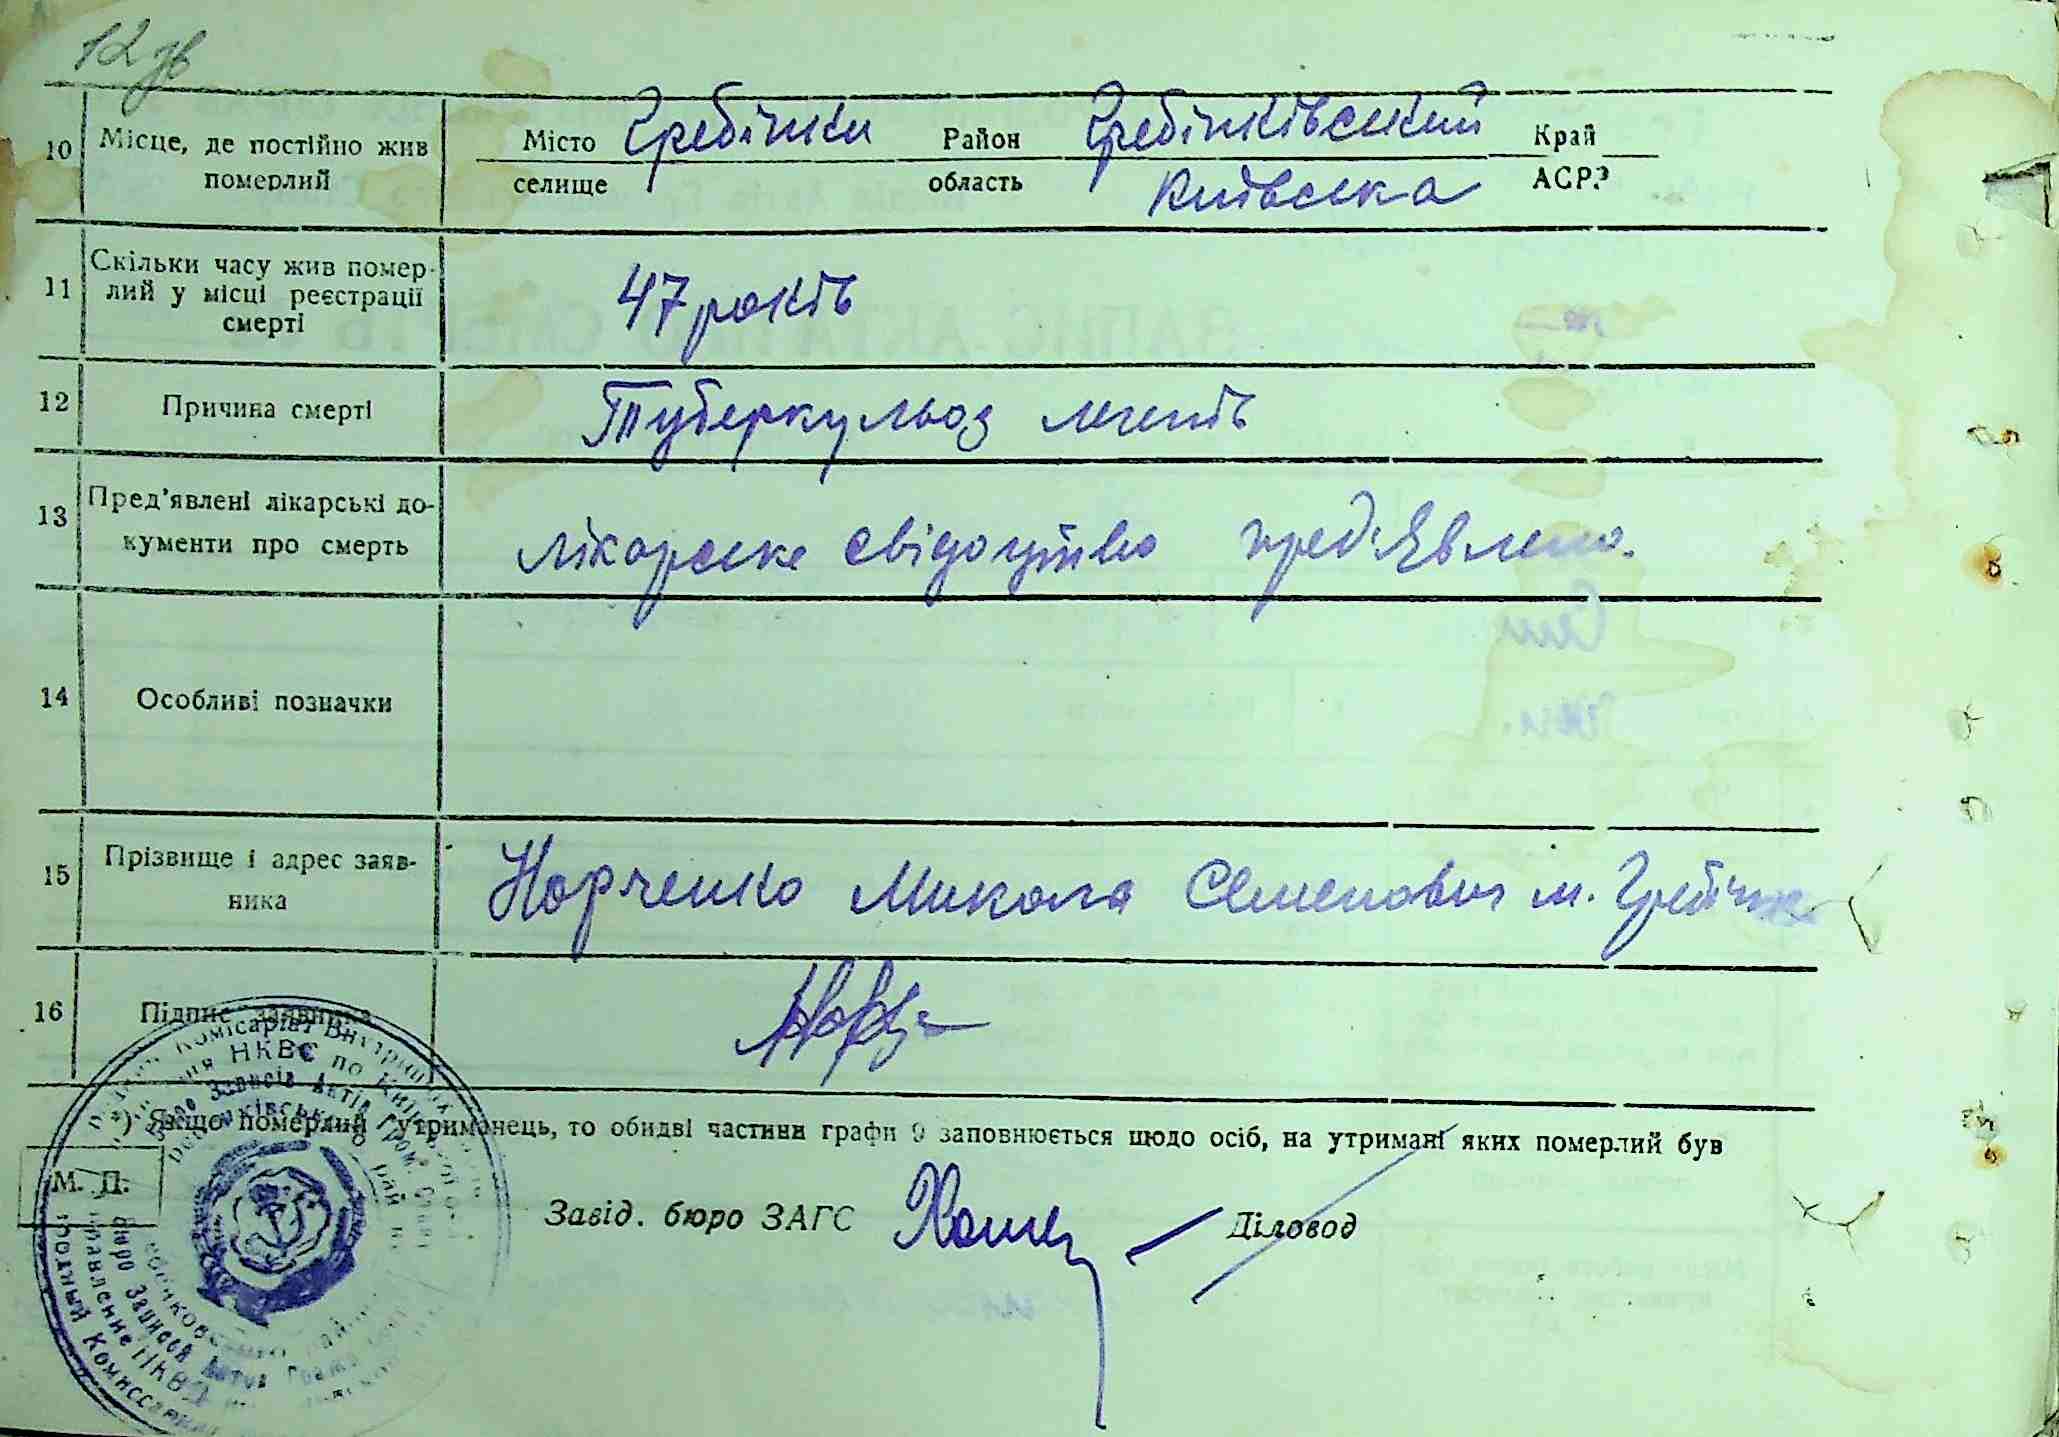 12 зв
10 Місце, де постійно жив померлий
Місто Гребінки Район Гребінківський Край
селище область Київська АСРР
11 Скільки часу жив помер-
лий у місці реєстрації
смерті
47 років
12 Причина смерті Туберкульоз легенів
13 Пред'явлені лікарські до-
кументи про смерть
лікарське свідоцтво пред'явлено.
14 Особливі позначки
15 Прізвище і адрес заяв-
ника
Норченко Микола Семенович м. Гребінки
16 Підпис заявника
*) Якщо померлий утриманець, то обидві частини графи 9 заповнюється щодо осіб, на утримані яких померлий був
М. П.
Завід. бюро ЗАГС Діловод
Комісаріат Внутрішніх
НКВС по Київській
Бюро Записів Актів Гром. Стану
Бюро Записей Актов Гражд
Управление НКВД
Народный Комиссариат